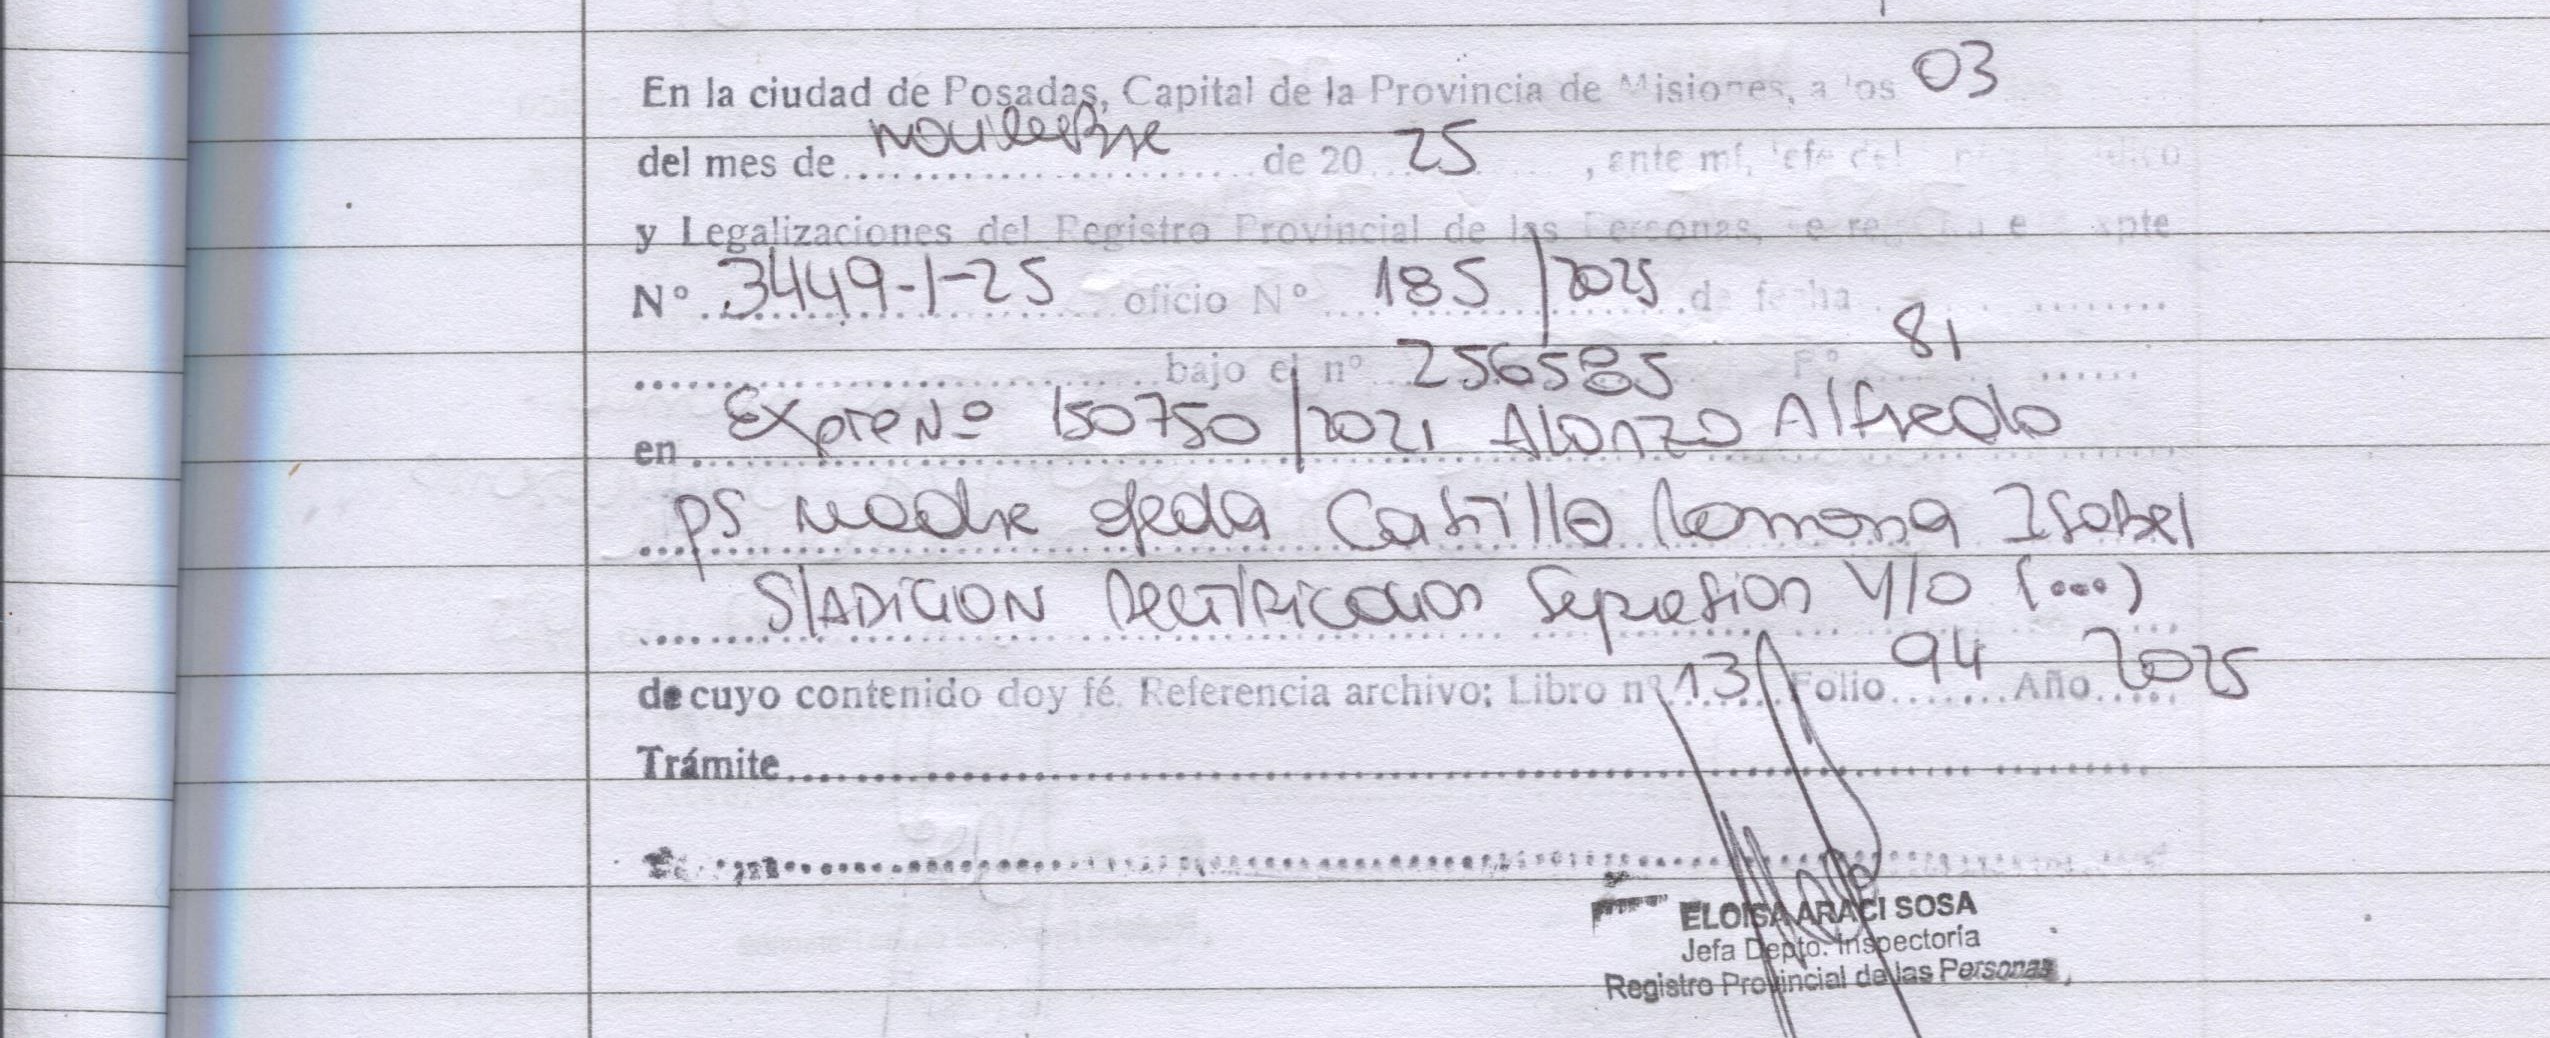 En la ciudad de Posadas, Capital de la Provincia de Misiones, a los 03
del mes de noviembre de 20 25, ante mí, Jefe del
y Legalizaciones del Registro Provincial de las Personas, se expte
Nº 3449-1-25 oficio Nº 185/2025 de fecha
bajo el nº 256585 Fº 81
en Expte Nº 150750/2021 Alonzo Alfredo
ps madre Ojeda Castillo Ramona Isabel
S/ADICION Rectificacion Supresion Y/O (...)
de cuyo contenido doy fé. Referencia archivo; Libro nº 13 Folio 94 Año 2025
Trámite
ELOISA ARACI SOSA
Jefa Depto. Inspectoría
Registro Provincial de las Personas